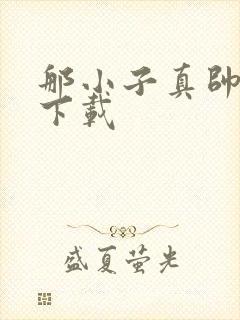 那小子真帥
下載
盛夏萤光